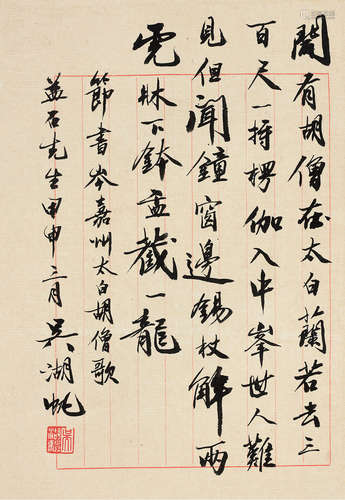 聞有胡僧在太白蘭若去三
百尺一持楞伽入中峯世人難
見但聞鐘窗邊錫杖解兩
虎牀下鉢盂藏一龍
節書岑嘉州太白胡僧歌
益石先生甲申三月吳湖帆